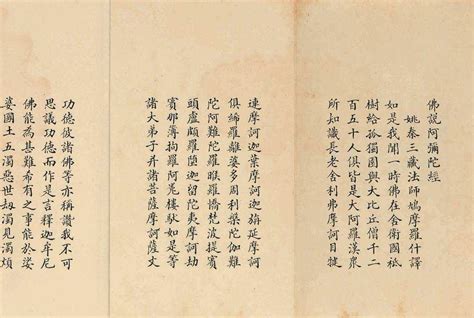 佛說阿彌陀經
姚秦三藏法師鳩摩羅什譯
如是我聞一時佛在舍衛國祇
樹給孤獨園與大比丘僧千二
百五十人俱皆是大阿羅漢衆
所知識長老舍利弗摩訶目揵
連摩訶迦葉摩訶迦旃延摩訶
俱絺羅離婆多周利槃陀伽難
陀阿難陀羅睺羅憍梵波提賓
頭盧頗羅墮迦留陀夷摩訶劫
賓那薄拘羅阿㝹樓馱如是等
諸大弟子并諸菩薩摩訶薩文
功德彼諸佛等亦稱讚我不可
思議功德而作是言釋迦牟尼
佛能為甚難希有之事能於娑
婆國土五濁惡世劫濁見濁煩